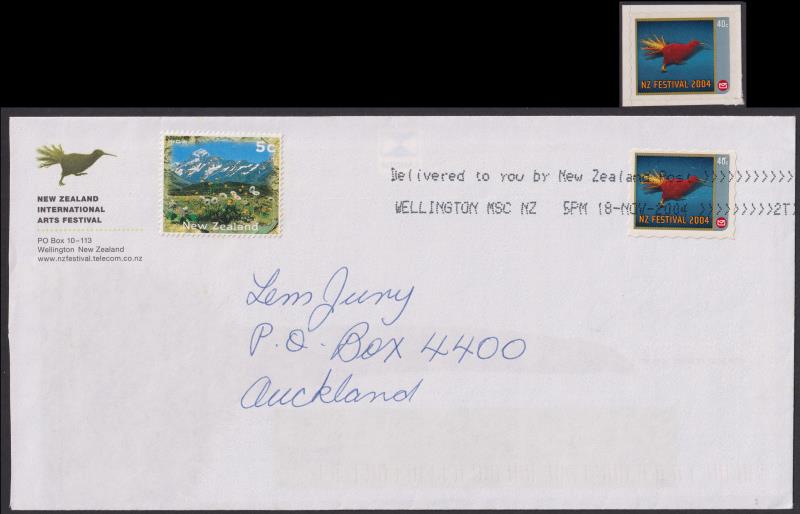 40c
NZ FESTIVAL 2004
NEW ZEALAND
INTERNATIONAL
ARTS FESTIVAL
PO Box 10-113
Wellington New Zealand
www.nzfestival.telecom.co.nz
5c
New Zealand
Delivered to you by New Zealand Post >>>>>>>>>>>
WELLINGTON MSC NZ 5PM 18-NOV-2004 >>>>>>>>>2T
40c
NZ FESTIVAL 2004
Lem Jury
P.O. Box 4400
Auckland